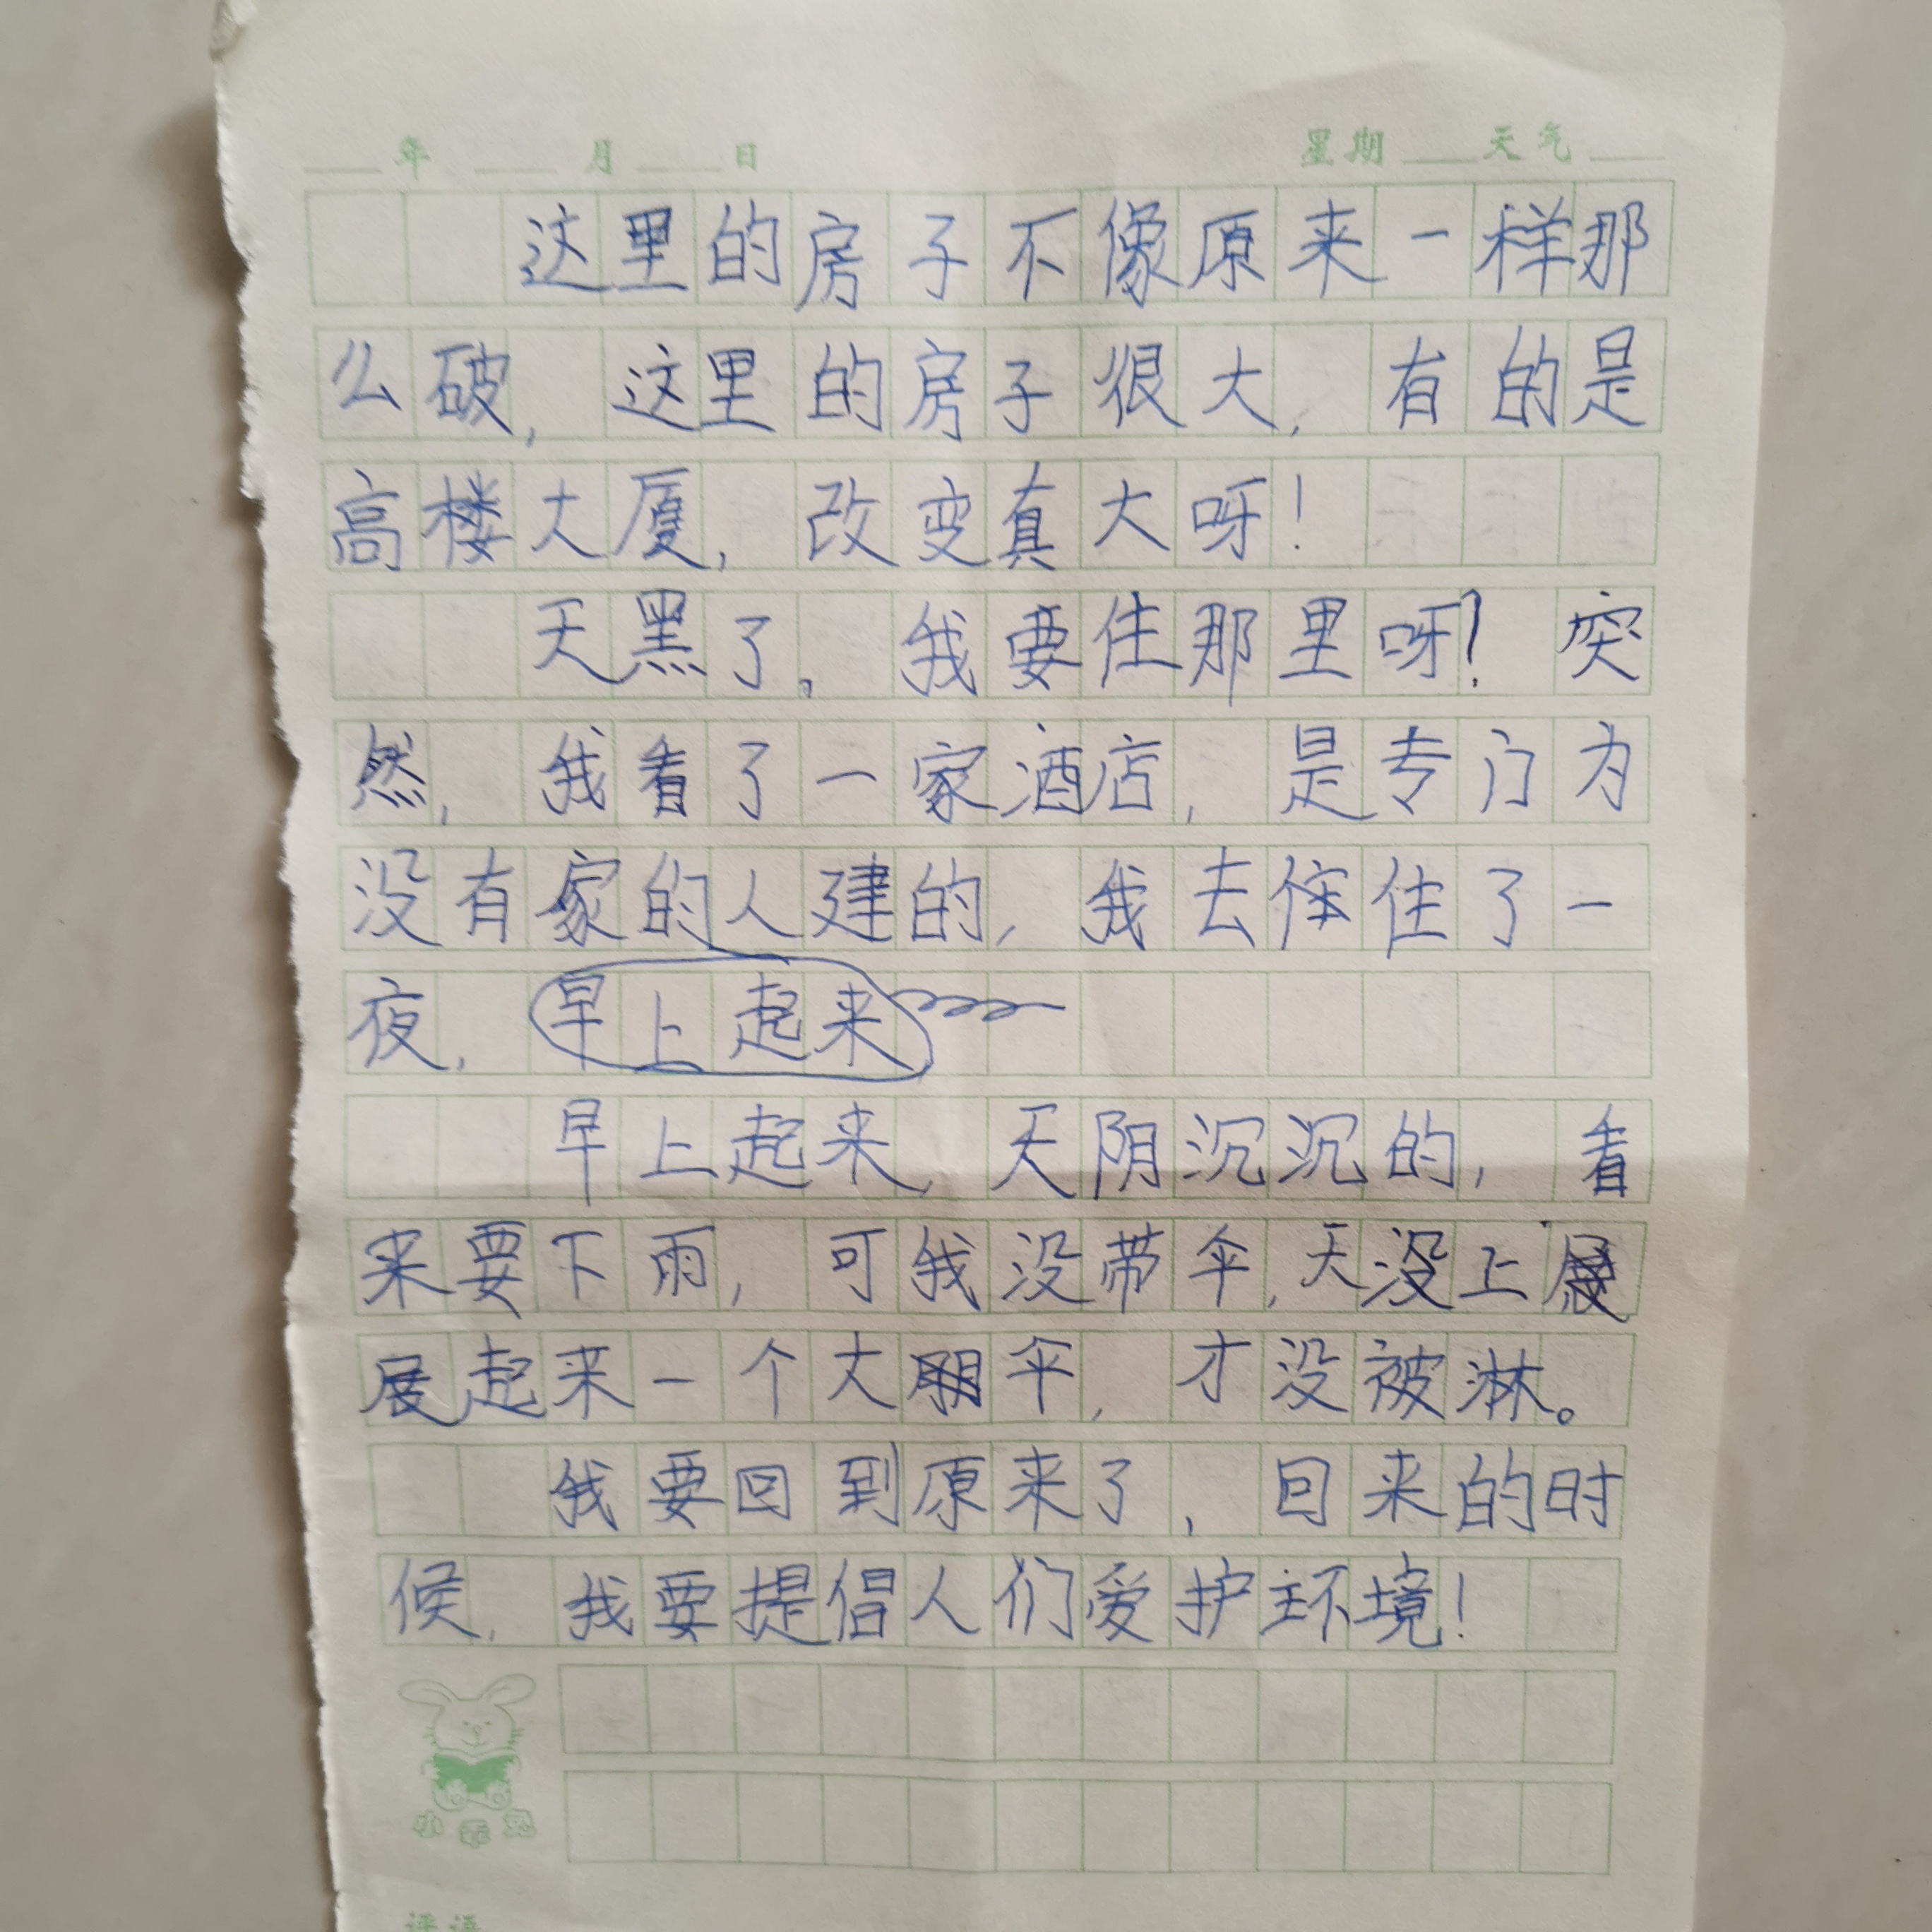 年 月 日 星期 天气
这里的房子不像原来一样那
么破，这里的房子很大，有的是
高楼大厦，改变真大呀！
天黑了。我要住那里呀？突
然，我看了一家酒店，是专门为
没有家的人建的，我去住住了一
夜，早上起来
早上起来，天阴沉沉的，看
来要下雨，可我没带伞，天没上展
展起来一个大朋伞，才没被淋。
我要回到原来了，回来的时
候，我要提倡人们爱护环境！
小乖兔
评语